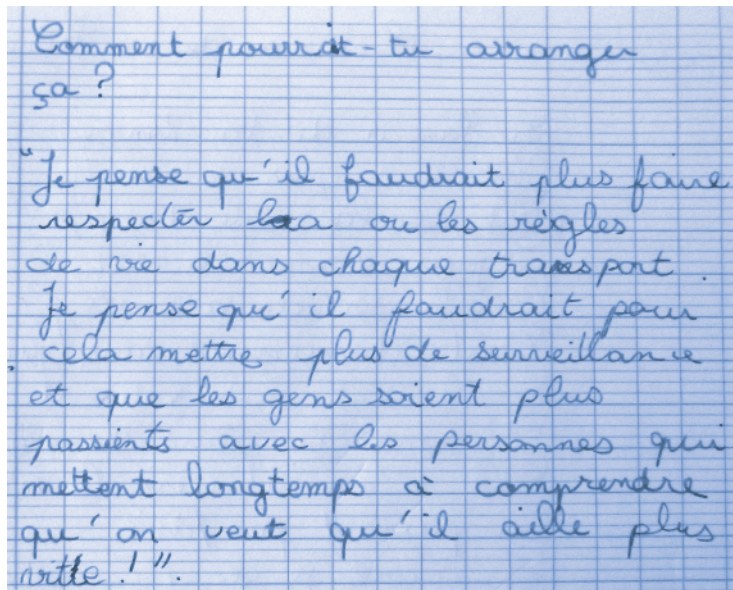 Comment pourrait-tu arranger
ça ?
"Je pense qu'il faudrait plus faire
respecter la ou les règles
de vie dans chaque transport.
Je pense qu'il faudrait pour
cela mettre plus de surveillance
et que les gens soient plus
passients avec les personnes qui
mettent longtemps à comprendre
qu'on veut qu'il aille plus
vite !".